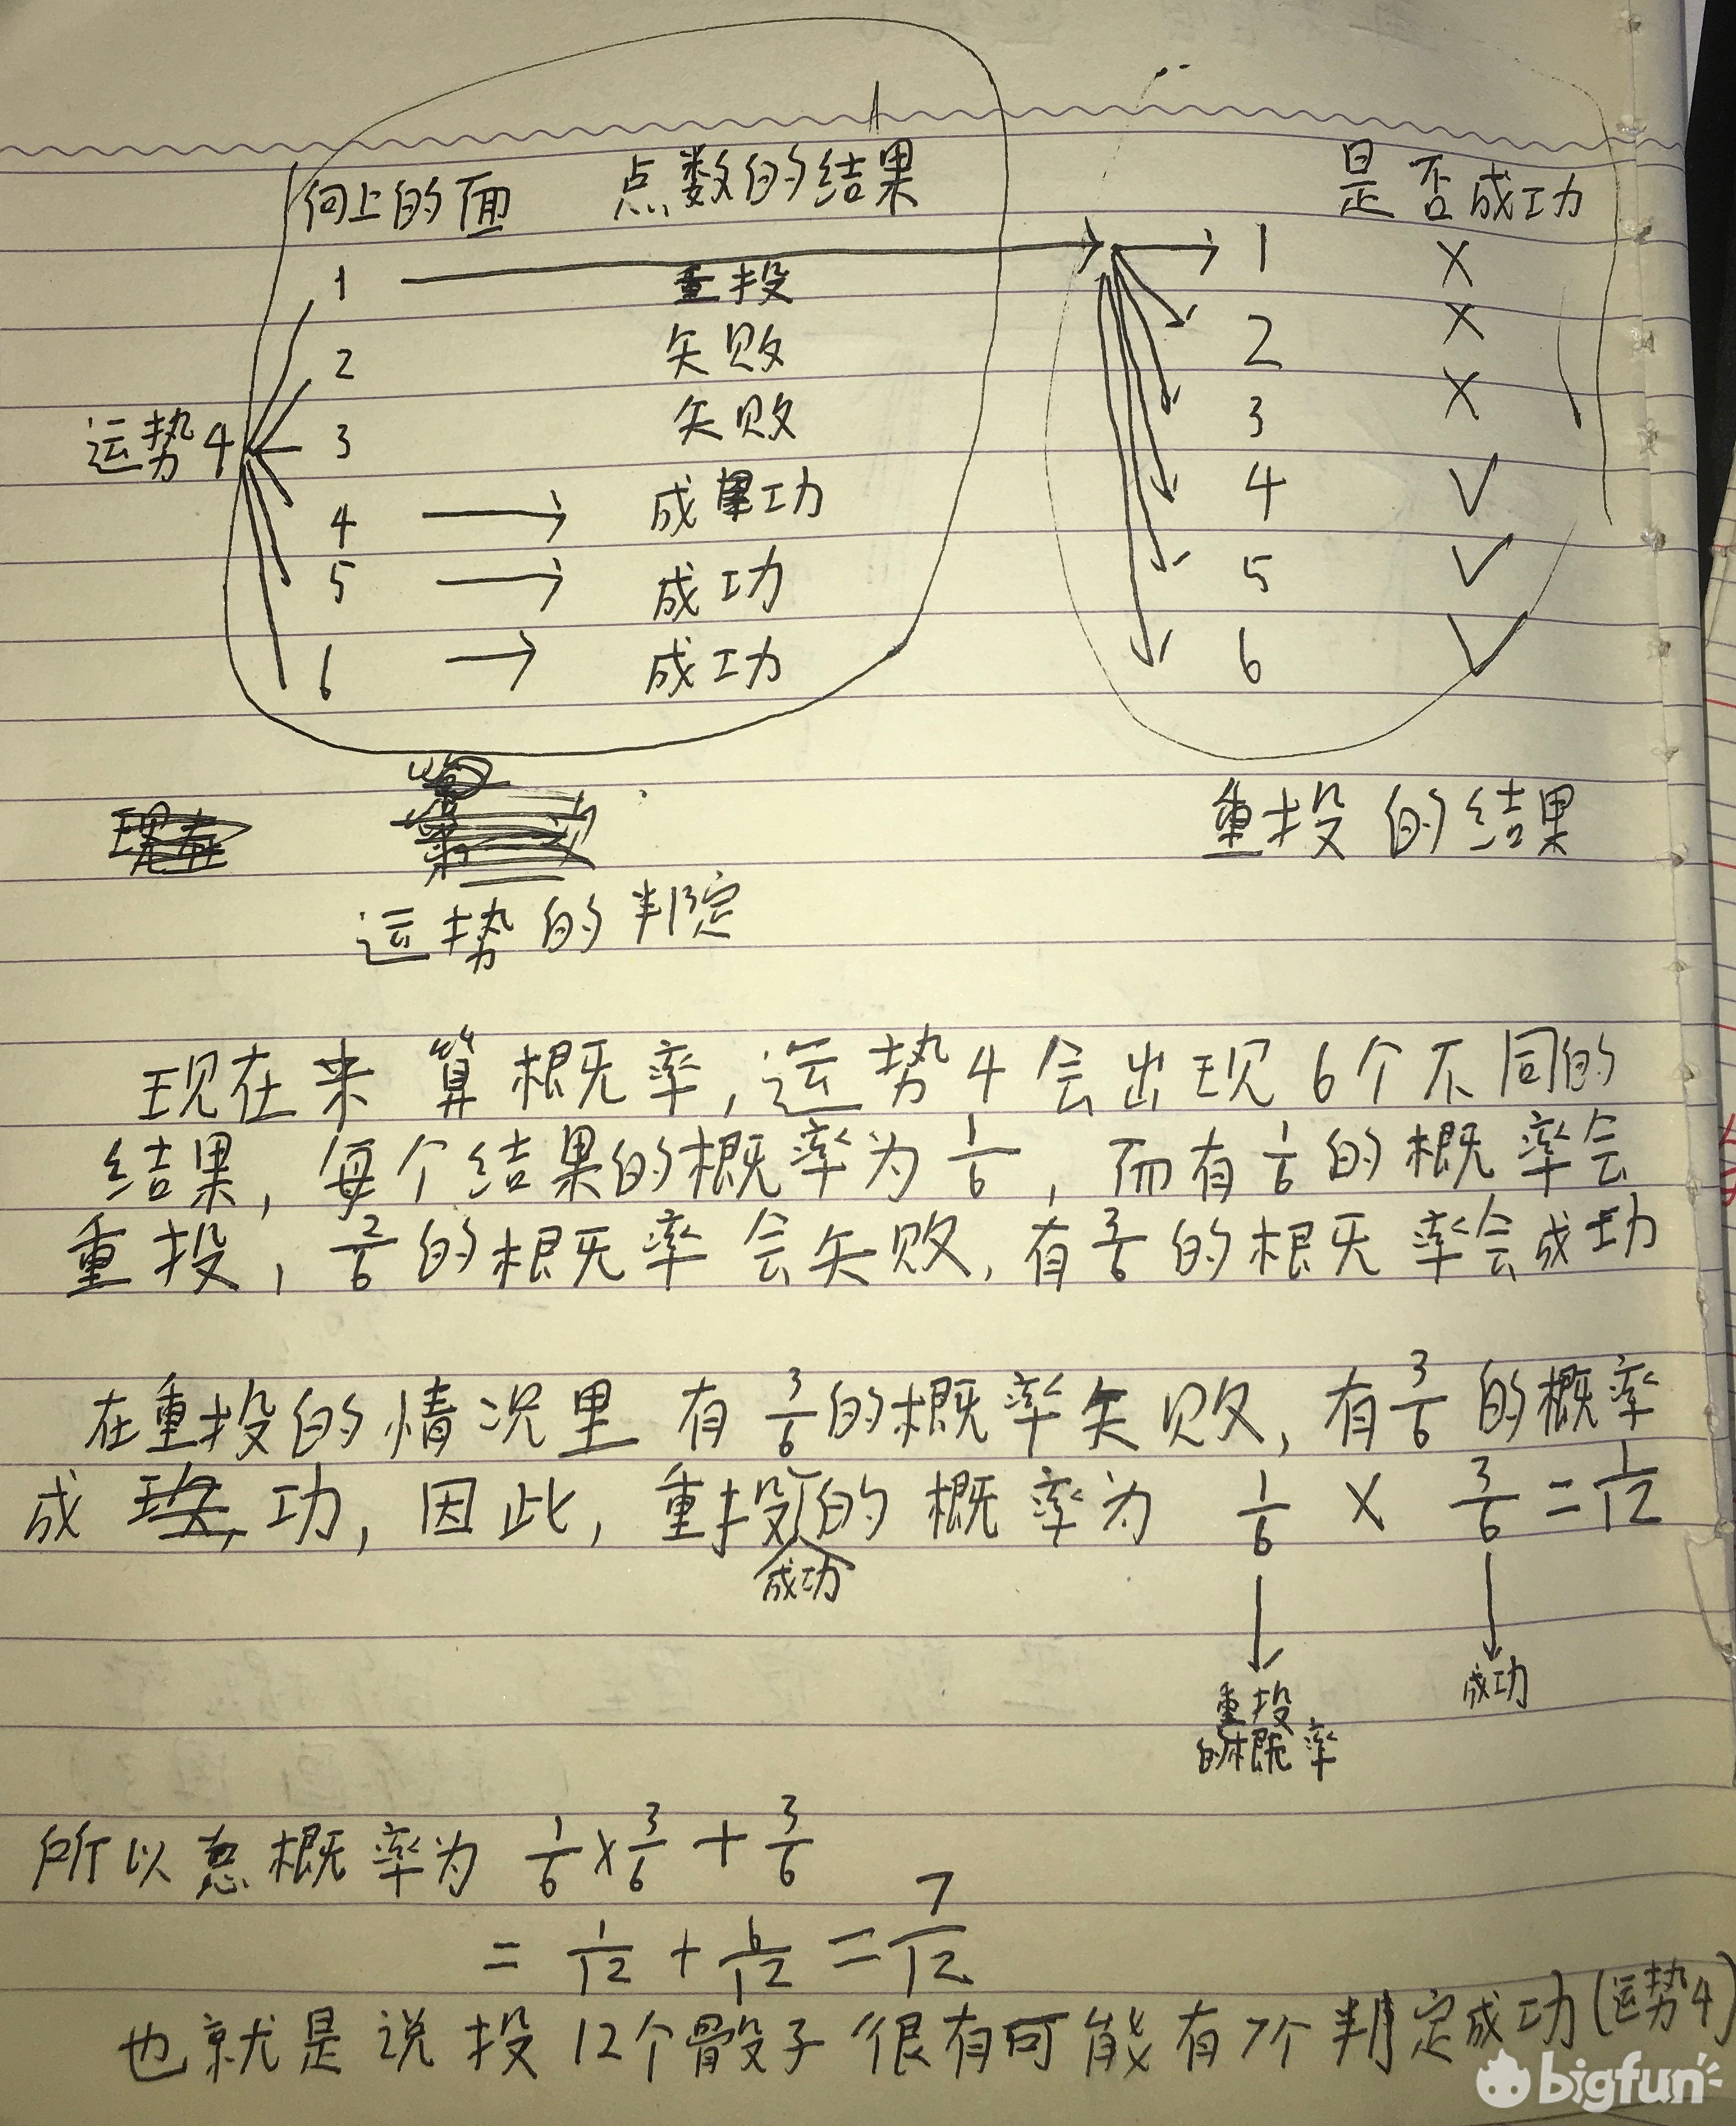 向上的面 点数的结果 是否成功
1 重投 1 ×
2 失败 2 ×
运势4 3 失败 3 ×
4 → 成功 4 √
5 → 成功 5 √
6 → 成功 6 √
重投的结果
运势的判定
现在来算概率,运势4会出现6个不同的
结果,每个结果的概率为1/6,而有1/6的概率会
重投,2/6的概率会失败,有3/6的概率会成功
在重投的情况里有3/6的概率失败,有3/6的概率
成功,因此,重投成功的概率为 1/6 × 3/6 = 1/12
重投的概率 成功
所以总概率为 1/6×3/6 + 3/6
= 1/12 + 6/12 = 7/12
也就是说投12个骰子很有可能有7个判定成功(运势4)
bigfun